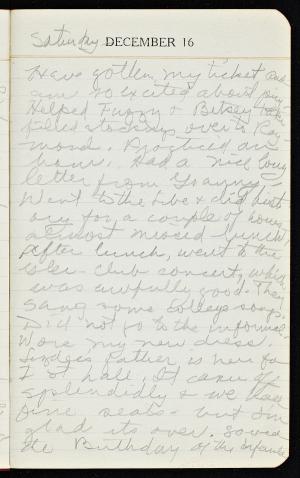 Saturday
DECEMBER 16
Have gotten my ticket and
am so excited about
Helped Fuzzy & Betsey take
filled stockings over to Ray-
mond. Practiced an
hour. Had a nice long
letter from Granny.
Went to the libe & did hist
ory for a couple of hours
almost missed lunch.
After lunch, went to the
Glee-Club concert, which
was awfully good. They
sang some college songs.
Did not go to the informal.
Wore my new dress.
father is here for
It came off
splendidly & we had
fine seats - but I'm
glad its over. Sewed
the Birthday of the